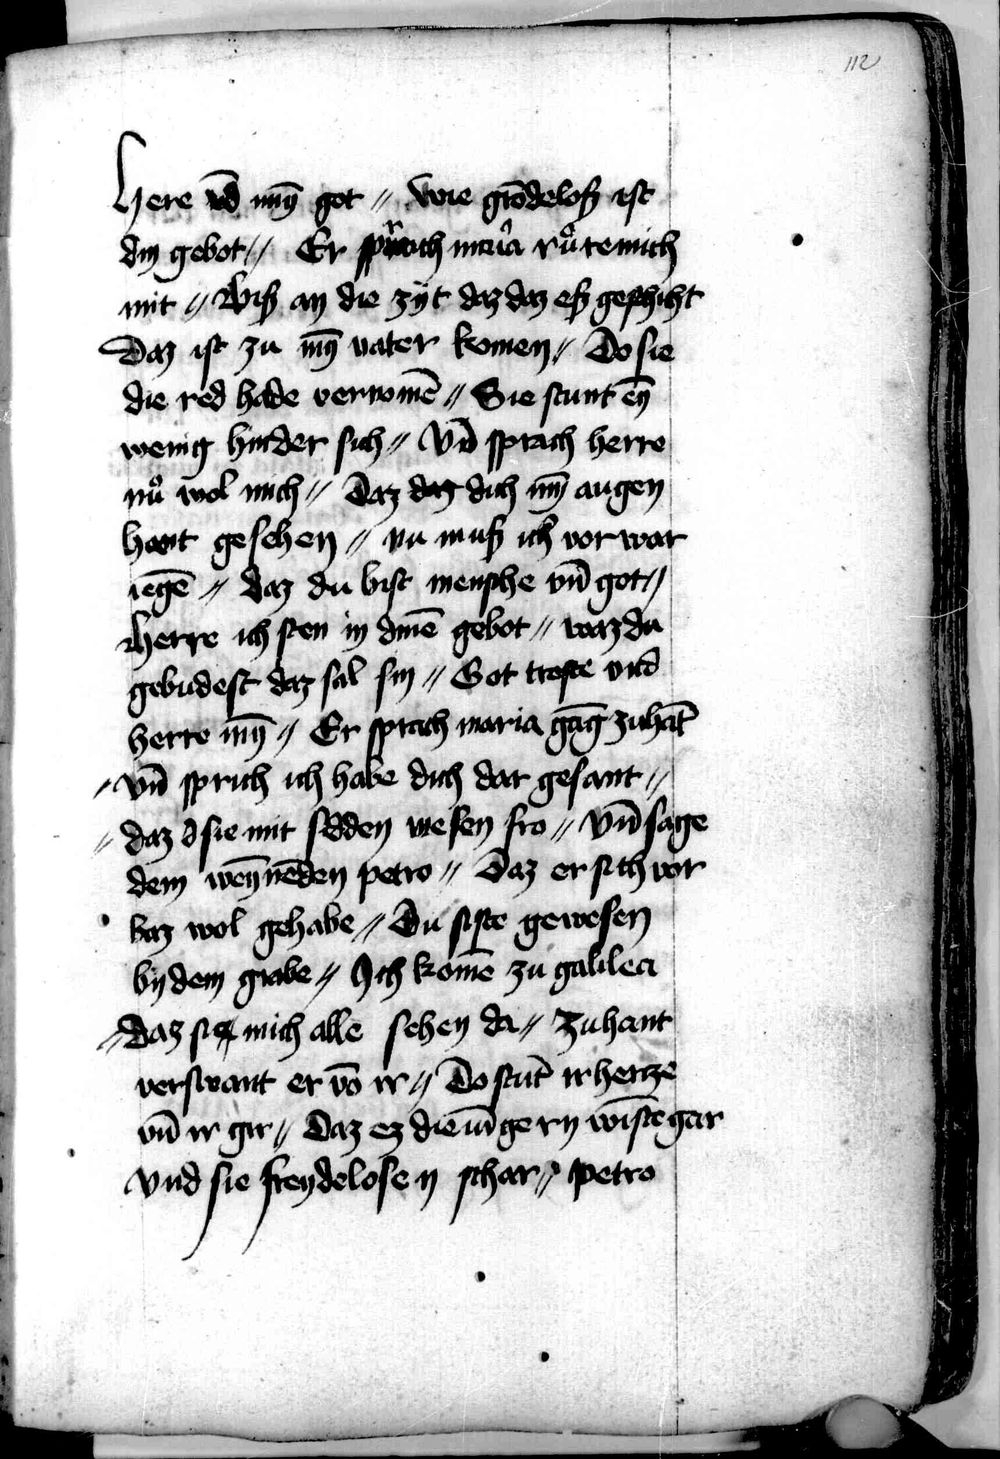 112
Here vnd myn̄ got // Wie grōdeloß ist
din gebot // Er sprach maria růre mich
nit // Biß an die zijt daz daz eß geschiht
Daz ist zu mȳ vater komen // Do sie
die red hade vernomē // Sie stunt eȳ
wenig hinder sich // Vn̄ sprach herre
nů wol mich // Daz daz dich mȳ augen
hant gesehen // nu muß ich vor war
iegē // daz du bist mensche vn̄ got //
Herre ich sten in dinē gebot // waz du
gebudest daz sal sin // Got troste vnd
herre mȳ // Er sprach maria gāg zuhāt
// vn̄ sprich ich habe dich dar gesant //
// daz sie mit fredden wesen fro // Vn̄ sage
dem weȳnēden petro // Daz er sich vor
baz wol gehabe // Du siste gewesen
bij dem grabe // Ich komē zu galilea
// Daz sie mich alle sehen da // Zuhant
verswant er vō ir // Do stūt ir hercze
vn̄ ir gir // Daz ez die iūgern wiste gar
Vnd sie freydelosen schar // petro